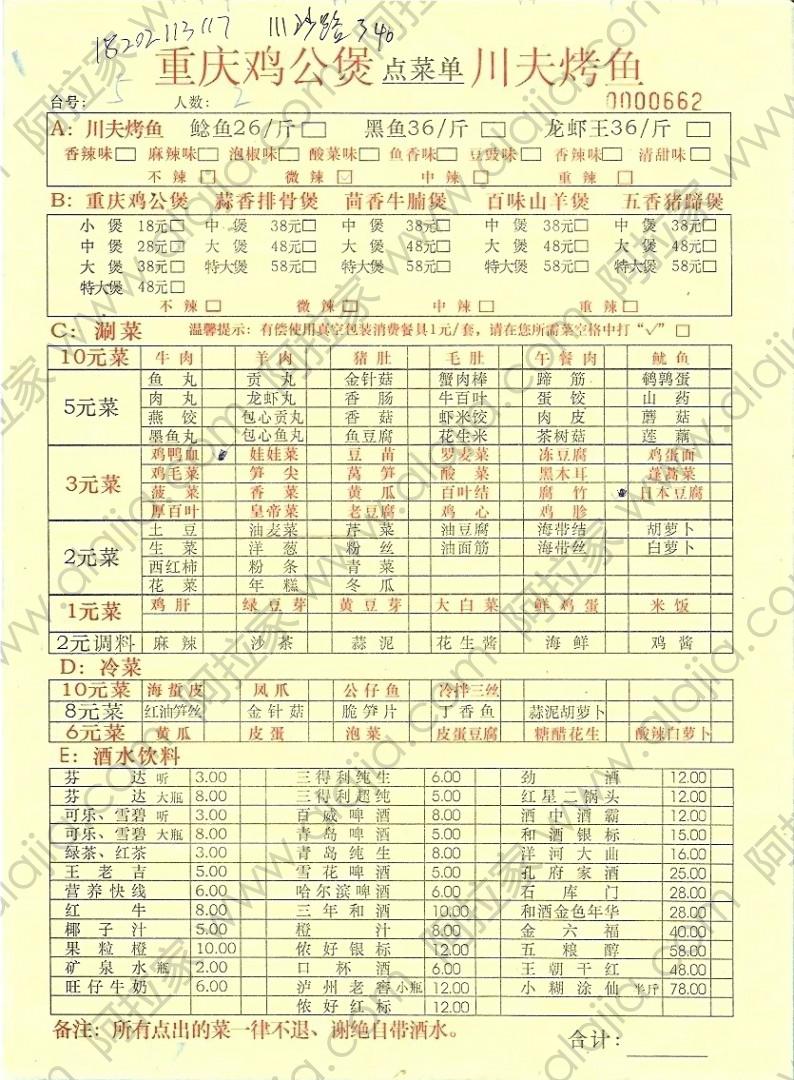 18202113117 111沙 340
重庆鸡公煲 点菜单 川夫烤鱼
台号: 5 人数: 2 0000662
A: 川夫烤鱼 鲶鱼26/斤□ 黑鱼36/斤□ 龙虾王36/斤□
香辣味□ 麻辣味□ 泡椒味□ 酸菜味□ 鱼香味□ 豆豉味□ 香辣味□ 清甜味□
不辣□ 微辣☑ 中辣□ 重辣□
B: 重庆鸡公煲 蒜香排骨煲 茴香牛腩煲 百味山羊煲 五香猪蹄煲
小煲 18元□ 中煲 38元□ 中煲 38元□ 中煲 38元□ 中煲 38元□
中煲 28元□ 大煲 48元□ 大煲 48元□ 大煲 48元□ 大煲 48元□
大煲 38元□ 特大煲 58元□ 特大煲 58元□ 特大煲 58元□ 特大煲 58元□
特大煲 48元□
不辣□ 微辣□ 中辣□ 重辣□
C: 涮菜 温馨提示：有偿使用真空包装消费餐具1元/套，请在您所需菜空格中打“√”□
10元菜 牛肉 羊肉 猪肚 毛肚 午餐肉 鱿鱼
鱼丸 贡丸 金针菇 蟹肉棒 蹄筋 鹌鹑蛋
5元菜 肉丸 龙虾丸 香肠 牛百叶 蛋饺 山药
燕饺 包心贡丸 香菇 虾米饺 肉皮 蘑菇
墨鱼丸 包心鱼丸 鱼豆腐 花生米 茶树菇 莲藕
鸡鸭血 娃娃菜 豆苗 罗麦菜 冻豆腐 鸡蛋面
3元菜 鸡毛菜 笋尖 莴笋 酸菜 黑木耳 蓬蒿菜
菠菜 香菜 黄瓜 百叶结 腐竹 日本豆腐
厚百叶 皇帝菜 老豆腐 鸡心 鸡胗
土豆 油麦菜 芹菜 油豆腐 海带结 胡萝卜
2元菜 生菜 洋葱 粉丝 油面筋 海带丝 白萝卜
西红柿 粉条 青菜
花菜 年糕 冬瓜
1元菜 鸡肝 绿豆芽 黄豆芽 大白菜 鲜鸡蛋 米饭
2元调料 麻辣 沙茶 蒜泥 花生酱 海鲜 鸡酱
D: 冷菜
10元菜 海蜇皮 凤爪 公仔鱼 冷拌三丝
8元菜 红油笋丝 金针菇 脆笋片 丁香鱼 蒜泥胡萝卜
6元菜 黄瓜 皮蛋 泡菜 皮蛋豆腐 糖醋花生 酸辣白萝卜
E: 酒水饮料
芬达 听 3.00 三得利纯生 6.00 劲酒 12.00
芬达 大瓶 8.00 三得利超纯 5.00 红星二锅头 12.00
可乐、雪碧 听 3.00 百威啤酒 8.00 酒中酒霸 12.00
可乐、雪碧 大瓶 8.00 青岛啤酒 5.00 和酒银标 15.00
绿茶、红茶 3.00 青岛纯生 8.00 洋河大曲 16.00
王老吉 5.00 雪花啤酒 5.00 孔府家酒 25.00
营养快线 6.00 哈尔滨啤酒 6.00 石库门 28.00
红牛 8.00 三年和酒 10.00 和酒金色年华 28.00
椰子汁 5.00 橙汁 8.00 金六福 40.00
果粒橙 10.00 侬好银标 12.00 五粮醇 58.00
矿泉水 瓶 2.00 口杯酒 6.00 王朝干红 48.00
旺仔牛奶 6.00 泸州老窖 小瓶 12.00 小糊涂仙 半斤 78.00
侬好红标 12.00
备注：所有点出的菜一律不退、谢绝自带酒水。 合计:
阿拉家 www.alajia.com